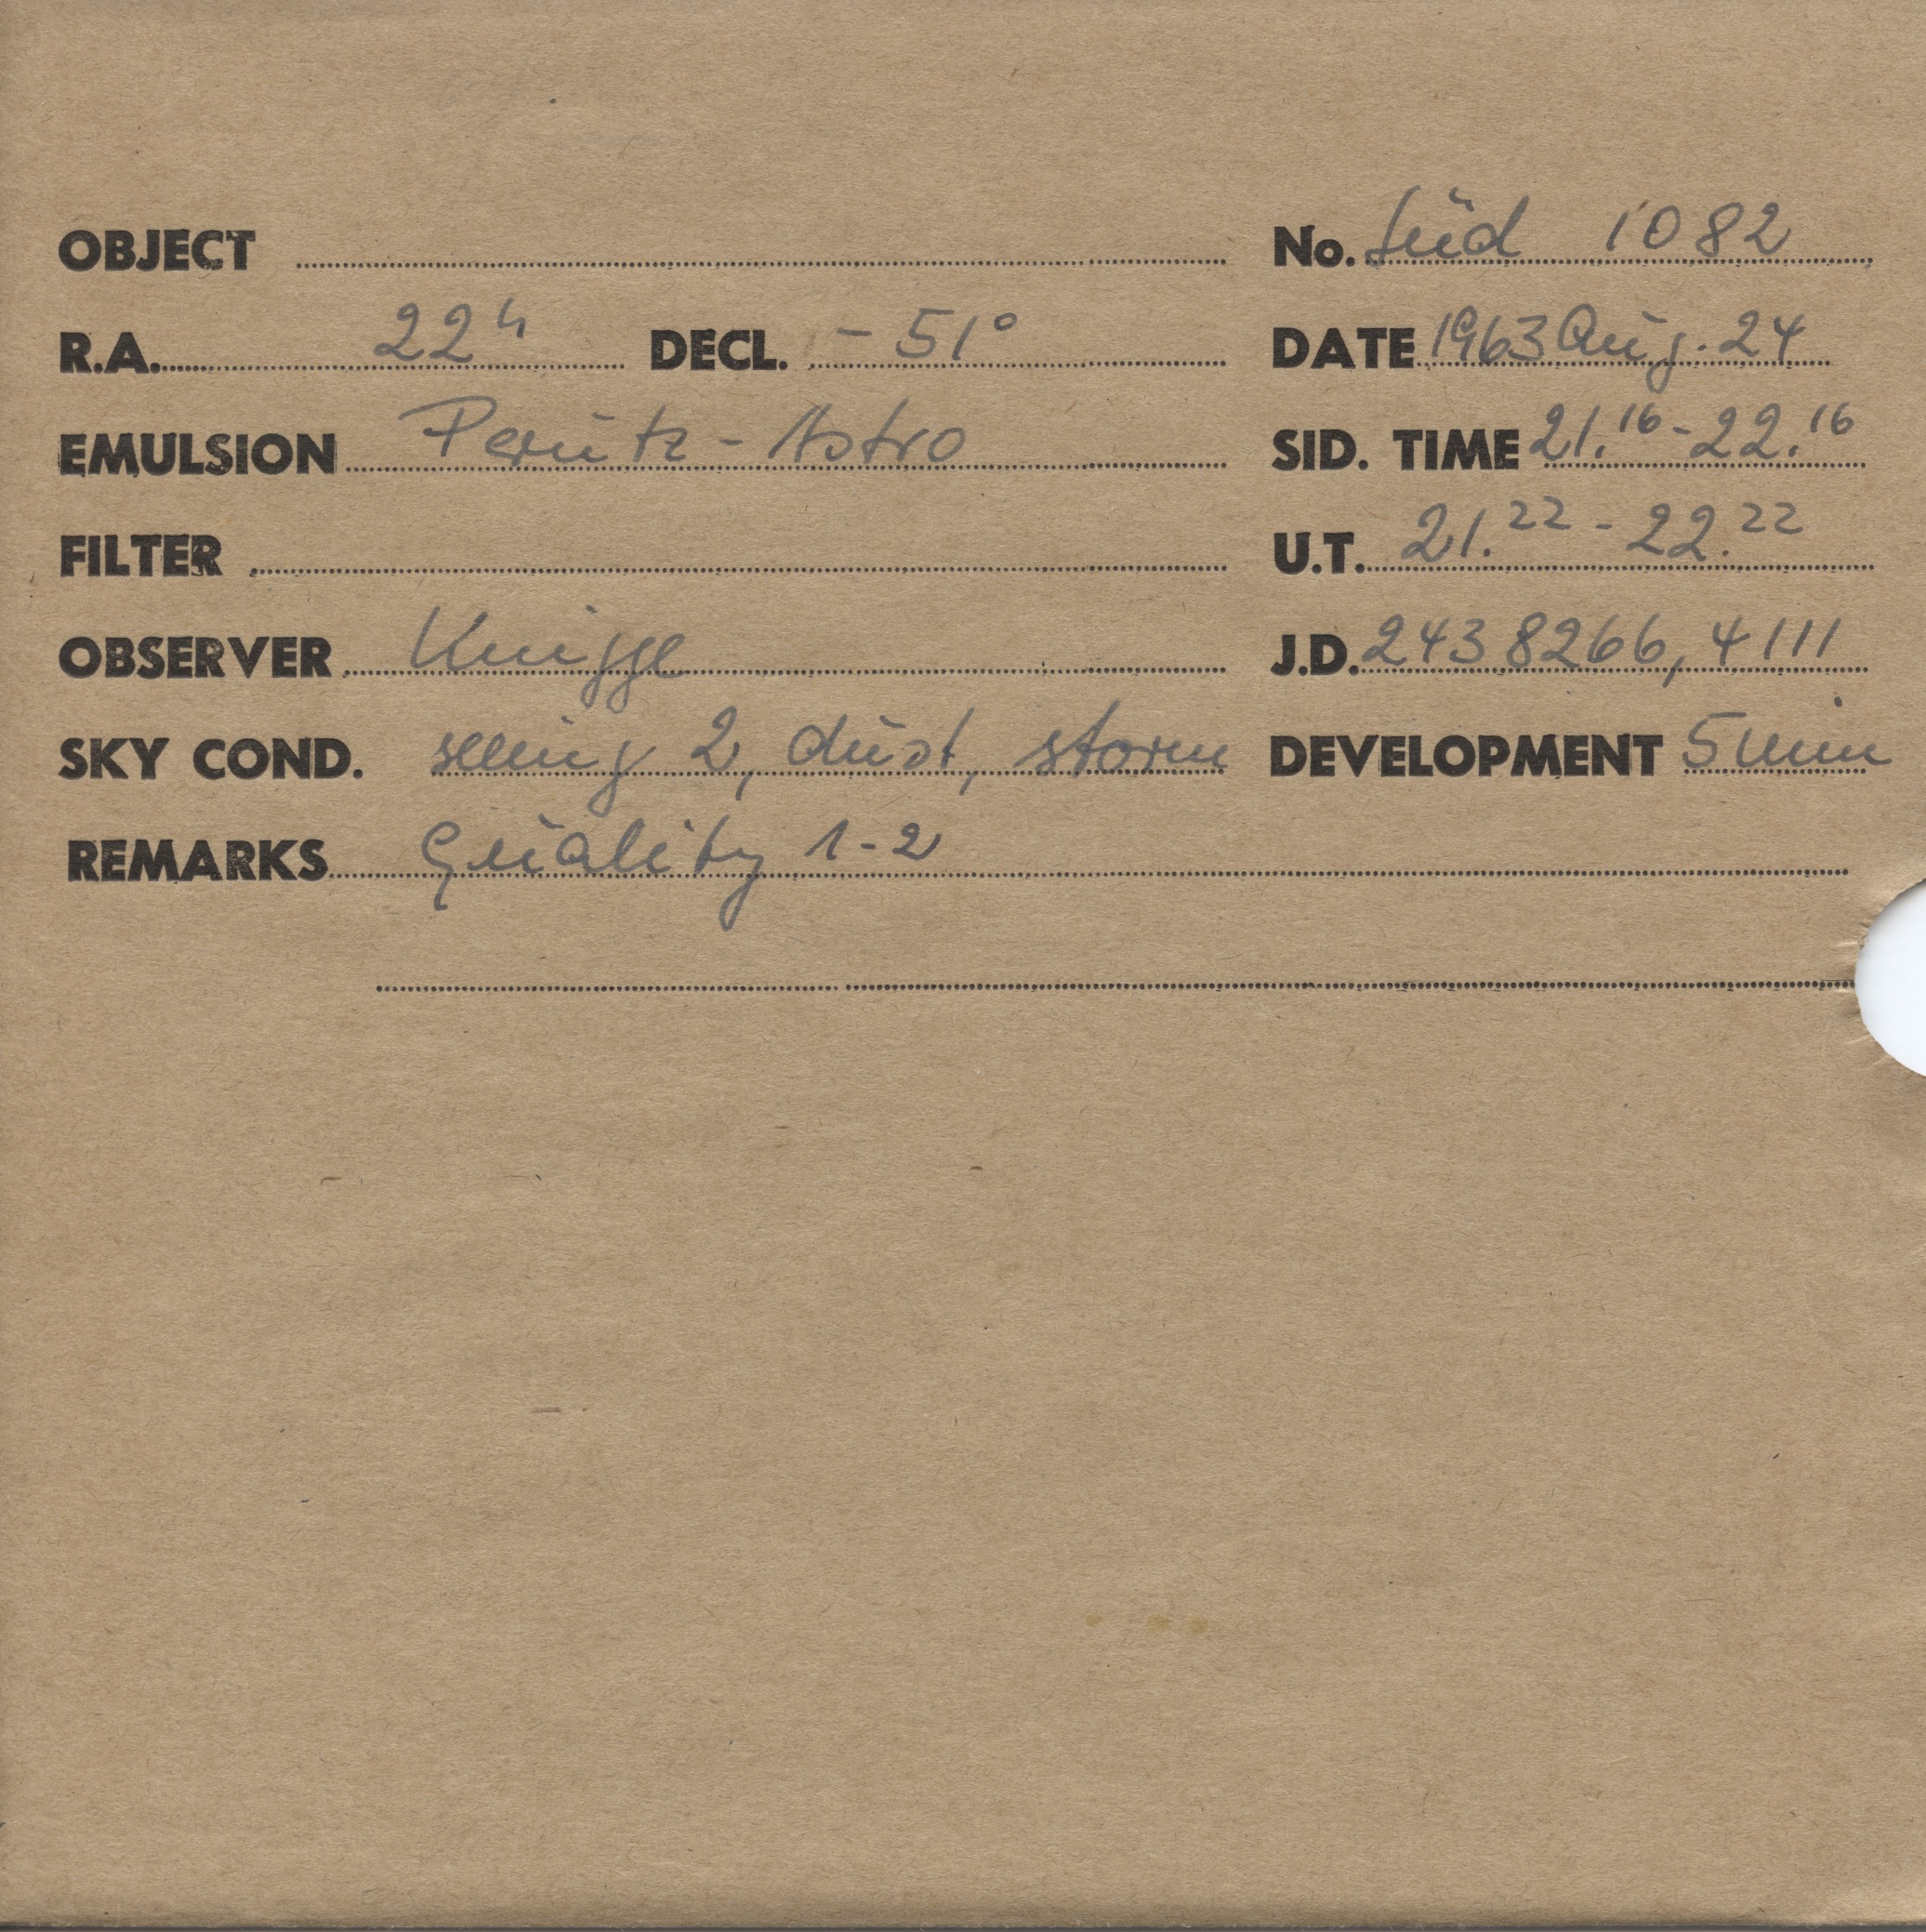 OBJECT No. Süd 1082
R.A. 22h DECL. -51° DATE 1963 Aug. 24
EMULSION Perutz-Astro SID. TIME 21.16-22.16
FILTER U.T. 21.22-22.22
OBSERVER Knigge J.D. 2438266,4111
SKY COND. seeing 2, dust, storm DEVELOPMENT 5 min
REMARKS Quality 1-2